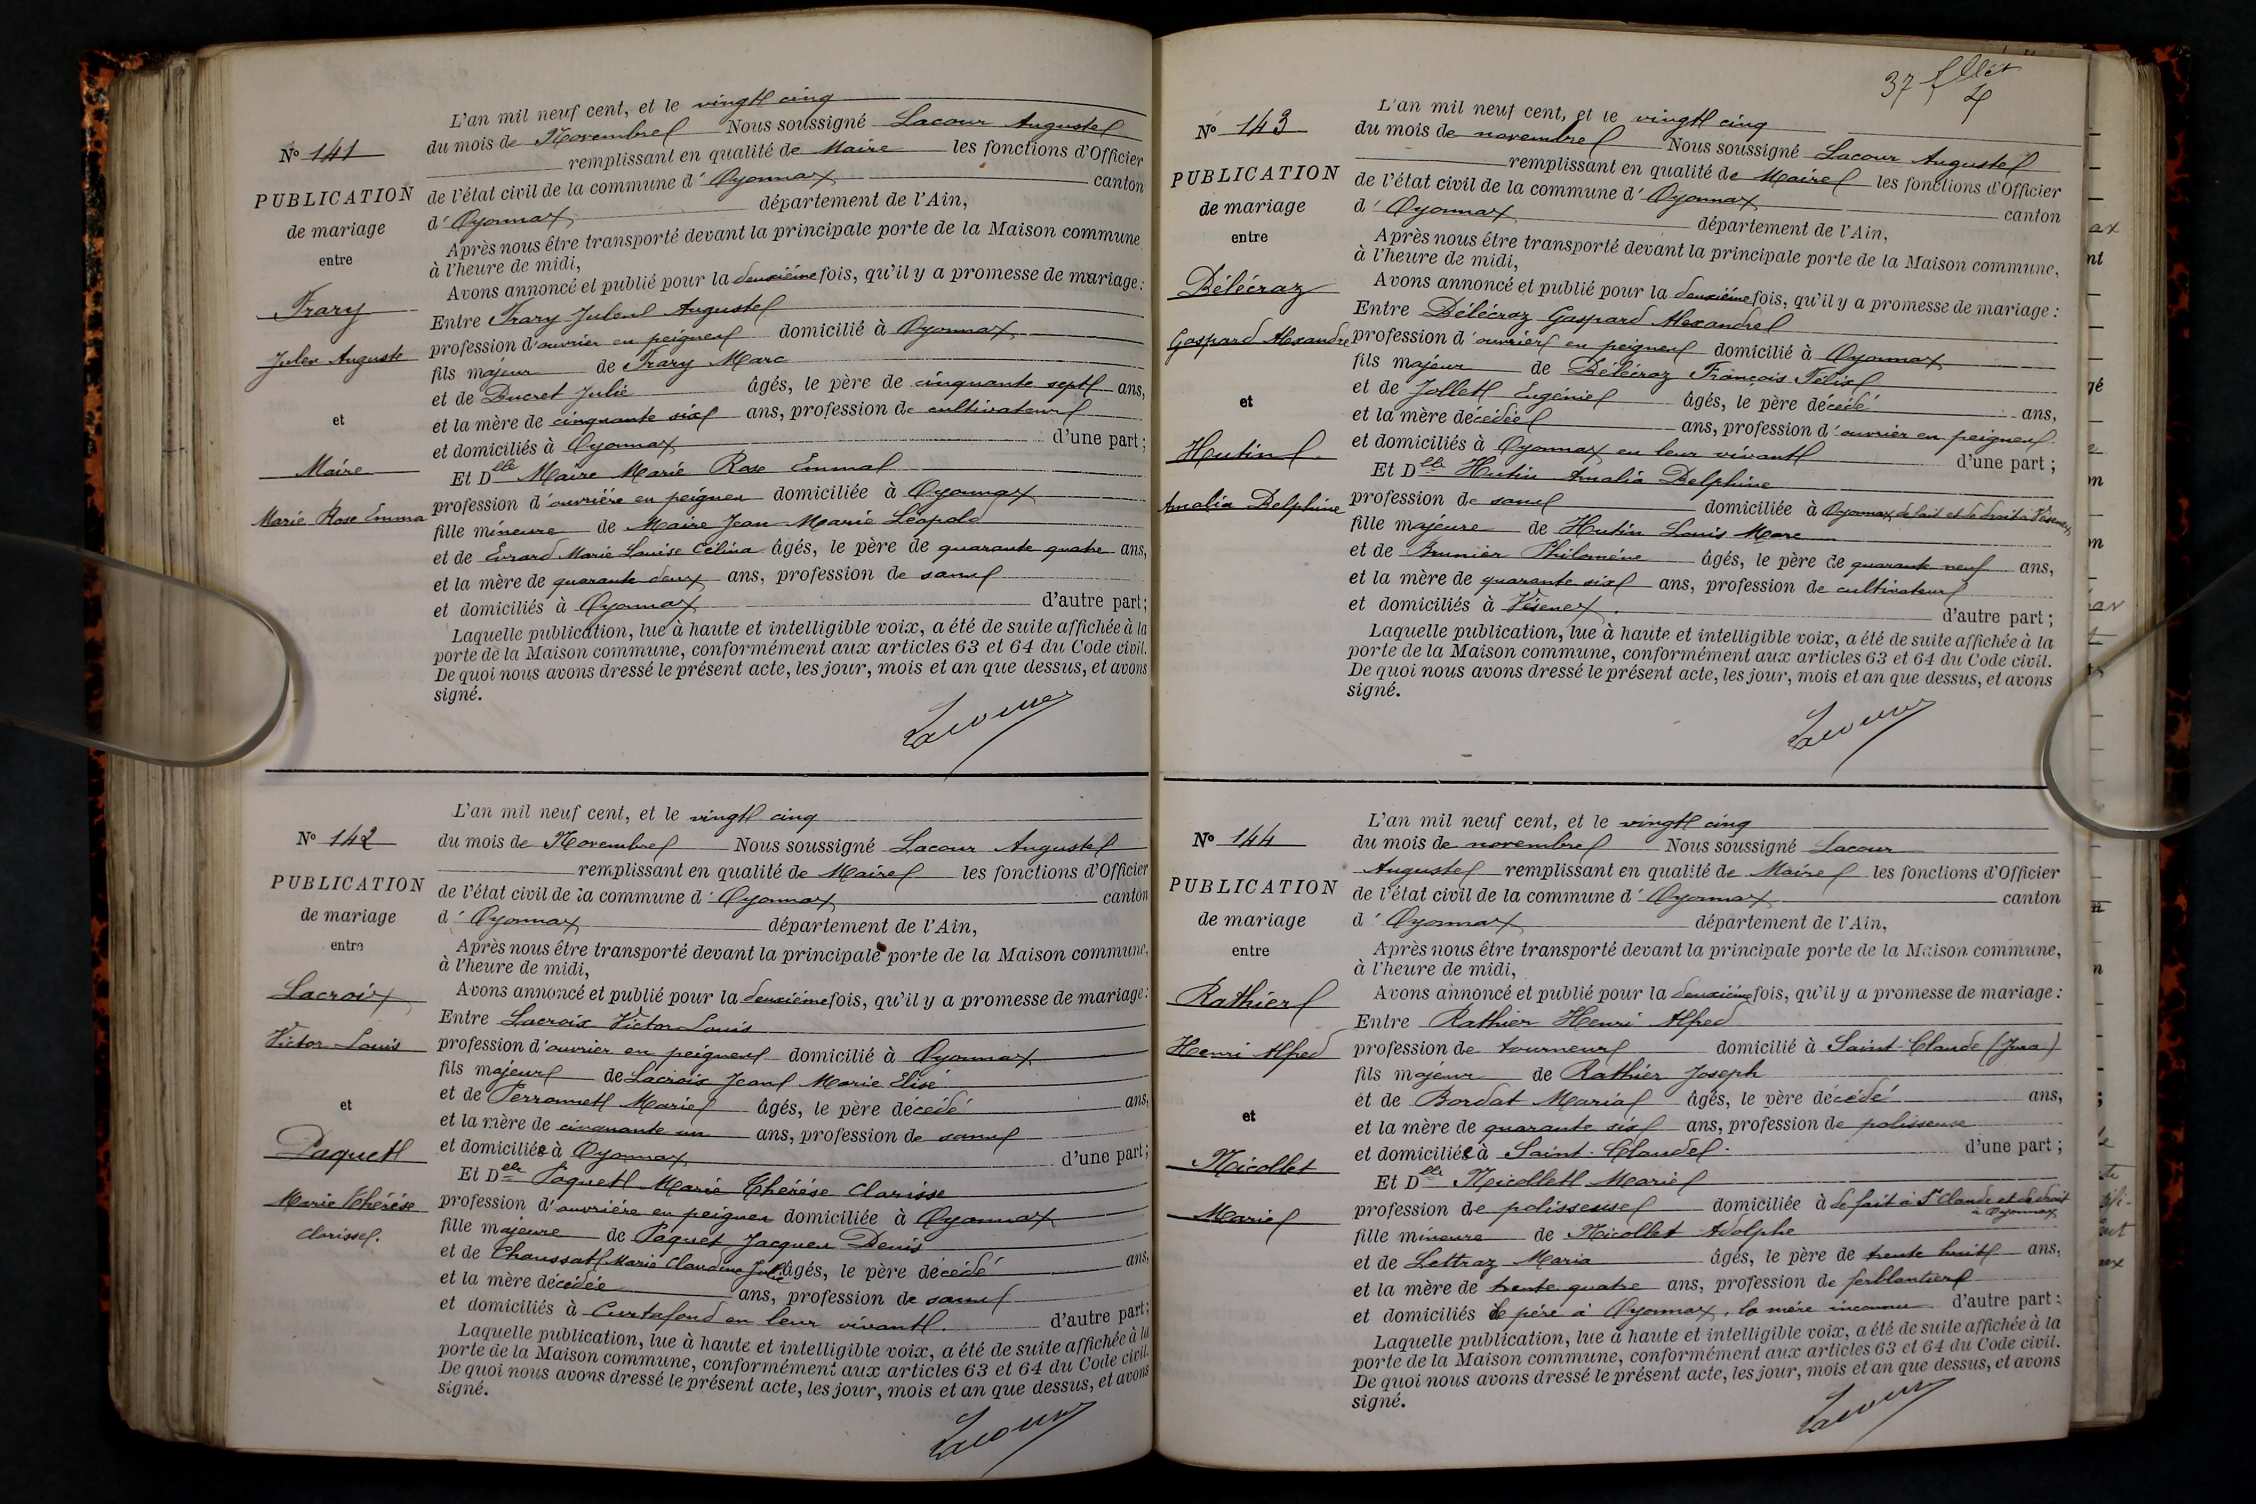 L'an mil neuf cent, et le vingt cinq
N° 141
du mois de Novembre Nous soussigné Lacour Auguste
remplissant en qualité de Maire les fonctions d'Officier
PUBLICATION
de l'état civil de la commune d' Oyonnax canton
de mariage
d' Oyonnax département de l'Ain,
entre
Après nous être transporté devant la principale porte de la Maison commune
à l'heure de midi,
Avons annoncé et publié pour la deuxième fois, qu'il y a promesse de mariage :
Frary
Entre Frary Jules Auguste
Jules Auguste
profession d'ouvrier en peignes domicilié à Oyonnax
fils majeur de Frary Marc
et de Ducret Julie âgés, le père de cinquante sept ans,
et
et la mère de cinquante six ans, profession de cultivateurs
et domiciliés à Oyonnax d'une part ;
Maire
Et Delle Maire Marie Rose Emma
Marie Rose Emma
profession d'ouvrière en peignes domiciliée à Oyonnax
fille mineure de Maire Jean Marie Léopold
et de Evrard Marie Louise Célina âgés, le père de quarante quatre ans,
et la mère de quarante deux ans, profession de sans
et domiciliés à Oyonnax d'autre part ;
Laquelle publication, lue à haute et intelligible voix, a été de suite affichée à la
porte de la Maison commune, conformément aux articles 63 et 64 du Code civil.
De quoi nous avons dressé le présent acte, les jour, mois et an que dessus, et avons
signé.
Lacour
L'an mil neuf cent, et le vingt cinq
N° 142
du mois de Novembre Nous soussigné Lacour Auguste
remplissant en qualité de Maire les fonctions d'Officier
PUBLICATION
de l'état civil de la commune d' Oyonnax canton
de mariage
d' Oyonnax département de l'Ain,
entre
Après nous être transporté devant la principale porte de la Maison commune,
à l'heure de midi,
Lacroix
Avons annoncé et publié pour la deuxième fois, qu'il y a promesse de mariage :
Entre Lacroix Victor Louis
Victor Louis
profession d'ouvrier en peignes domicilié à Oyonnax
fils majeur de Lacroix Jean Marie Elisé
et de Perronnet Marie âgés, le père décédé ans,
et
et la mère de cinquante un ans, profession de sans
Paquet
et domiciliée à Oyonnax d'une part ;
Et Delle Paquet Marie Thérèse Clarisse
Marie Thérèse
Clarisse.
profession d'ouvrière en peignes domiciliée à Oyonnax
fille majeure de Paquet Jacques Denis
et de Chaussat Marie Claudine Julie âgés, le père décédé ans,
et la mère décédée ans, profession de sans
et domiciliés à Curtafond en leur vivant. d'autre part ;
Laquelle publication, lue à haute et intelligible voix, a été de suite affichée à la
porte de la Maison commune, conformément aux articles 63 et 64 du Code civil.
De quoi nous avons dressé le présent acte, les jour, mois et an que dessus, et avons
signé.
Lacour
37
L'an mil neuf cent, et le vingt cinq
N° 143
du mois de novembre Nous soussigné Lacour Auguste
remplissant en qualité de Maire les fonctions d'Officier
PUBLICATION
de l'état civil de la commune d' Oyonnax canton
de mariage
d' Oyonnax département de l'Ain,
entre
Après nous être transporté devant la principale porte de la Maison commune,
à l'heure de midi,
Avons annoncé et publié pour la deuxième fois, qu'il y a promesse de mariage :
Délécraz
Entre Délécraz Gaspard Alexandre
Gaspard Alexandre
profession d'ouvrier en peignes domicilié à Oyonnax
fils majeur de Délécraz François Félix
et
et de Jollet Eugénie âgés, le père décédé ans,
et la mère décédée ans, profession d'ouvrier en peignes
et domiciliés à Oyonnax en leur vivant d'une part ;
Hutin
Et Delle Hutin Amalia Delphine
Amalia Delphine
profession de sans domiciliée à Oyonnax de fait et de droit à Vésenex
fille majeure de Hutin Louis Marc
et de Brunier Philomène âgés, le père de quarante neuf ans,
et la mère de quarante six ans, profession de cultivateurs
et domiciliés à Vésenex. d'autre part ;
Laquelle publication, lue à haute et intelligible voix, a été de suite affichée à la
porte de la Maison commune, conformément aux articles 63 et 64 du Code civil.
De quoi nous avons dressé le présent acte, les jour, mois et an que dessus, et avons
signé.
Lacour
L'an mil neuf cent, et le vingt cinq
N° 144
du mois de novembre Nous soussigné Lacour
Auguste remplissant en qualité de Maire les fonctions d'Officier
PUBLICATION
de l'état civil de la commune d' Oyonnax canton
de mariage
d' Oyonnax département de l'Ain,
entre
Après nous être transporté devant la principale porte de la Maison commune,
à l'heure de midi,
Rathier
Avons annoncé et publié pour la deuxième fois, qu'il y a promesse de mariage :
Entre Rathier Henri Alfred
Henri Alfred
profession de tourneur domicilié à Saint-Claude (Jura)
fils majeur de Rathier Joseph
et de Bordat Maria âgés, le père décédé ans,
et
et la mère de quarante six ans, profession de polisseuse
et domiciliée à Saint-Claude. d'une part ;
Nicollet
Et Delle Nicollet Marie
Marie
profession de polisseuse domiciliée à de fait à St Claude et de droit
à Oyonnax
fille mineure de Nicollet Adolphe
et de Lettraz Maria âgés, le père de trente huit ans,
et la mère de trente quatre ans, profession de ferblantier
et domiciliés le père à Oyonnax, la mère inconnue d'autre part ;
Laquelle publication, lue à haute et intelligible voix, a été de suite affichée à la
porte de la Maison commune, conformément aux articles 63 et 64 du Code civil.
De quoi nous avons dressé le présent acte, les jour, mois et an que dessus, et avons
signé.
Lacour